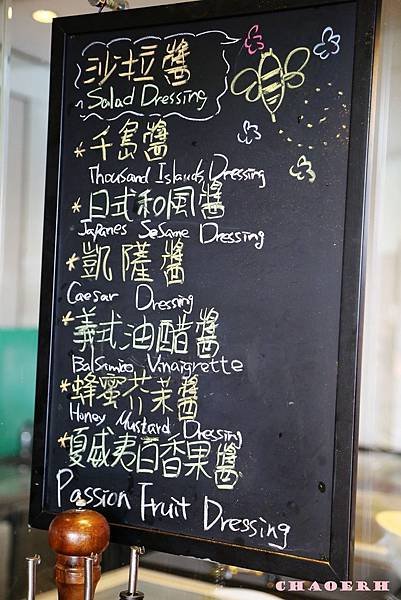 沙拉醬
Salad Dressing
*千島醬
Thousand Islands Dressing
*日式和風醬
Japanes Sesame Dressing
*凱薩醬
Caesar Dressing
*義式油醋醬
Balsamico Vinaigrette
*蜂蜜芥茉醬
Honey Mustard Dressing
*夏威夷百香果醬
Passion Fruit Dressing
CHAOERH